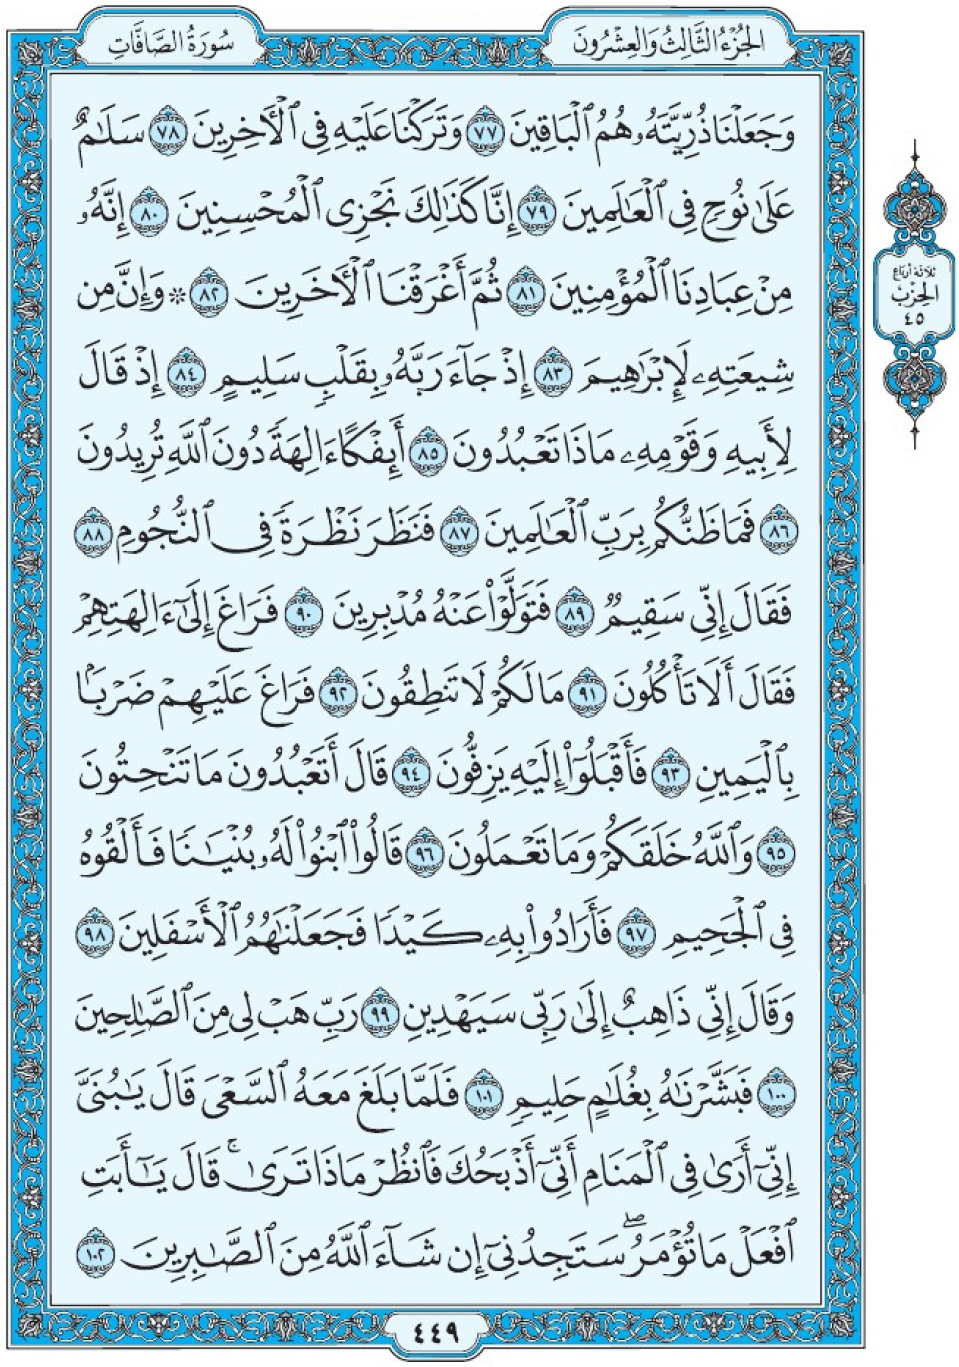 الجُزْءُ الثَّالِثُ وَالعِشْرُونَ
سُورَةُ الصَّافَّاتِ
وَجَعَلْنَا ذُرِّيَّتَهُۥ هُمُ ٱلْبَاقِينَ ٧٧ وَتَرَكْنَا عَلَيْهِ فِى ٱلْـَٔاخِرِينَ ٧٨ سَلَـٰمٌ
عَلَىٰ نُوحٍ فِى ٱلْعَـٰلَمِينَ ٧٩ إِنَّا كَذَٰلِكَ نَجْزِى ٱلْمُحْسِنِينَ ٨٠ إِنَّهُۥ
مِنْ عِبَادِنَا ٱلْمُؤْمِنِينَ ٨١ ثُمَّ أَغْرَقْنَا ٱلْـَٔاخَرِينَ ٨٢ * وَإِنَّ مِن
شِيعَتِهِۦ لَإِبْرَٰهِيمَ ٨٣ إِذْ جَآءَ رَبَّهُۥ بِقَلْبٍ سَلِيمٍ ٨٤ إِذْ قَالَ
لِأَبِيهِ وَقَوْمِهِۦ مَاذَا تَعْبُدُونَ ٨٥ أَئِفْكًا ءَالِهَةً دُونَ ٱللَّهِ تُرِيدُونَ
٨٦ فَمَا ظَنُّكُم بِرَبِّ ٱلْعَـٰلَمِينَ ٨٧ فَنَظَرَ نَظْرَةً فِى ٱلنُّجُومِ ٨٨
فَقَالَ إِنِّى سَقِيمٌ ٨٩ فَتَوَلَّوْا۟ عَنْهُ مُدْبِرِينَ ٩٠ فَرَاغَ إِلَىٰٓ ءَالِهَتِهِمْ
فَقَالَ أَلَا تَأْكُلُونَ ٩١ مَا لَكُمْ لَا تَنطِقُونَ ٩٢ فَرَاغَ عَلَيْهِمْ ضَرْبًۢا
بِٱلْيَمِينِ ٩٣ فَأَقْبَلُوٓا۟ إِلَيْهِ يَزِفُّونَ ٩٤ قَالَ أَتَعْبُدُونَ مَا تَنْحِتُونَ
٩٥ وَٱللَّهُ خَلَقَكُمْ وَمَا تَعْمَلُونَ ٩٦ قَالُوا۟ ٱبْنُوا۟ لَهُۥ بُنْيَـٰنًا فَأَلْقُوهُ
فِى ٱلْجَحِيمِ ٩٧ فَأَرَادُوا۟ بِهِۦ كَيْدًا فَجَعَلْنَـٰهُمُ ٱلْأَسْفَلِينَ ٩٨
وَقَالَ إِنِّى ذَاهِبٌ إِلَىٰ رَبِّى سَيَهْدِينِ ٩٩ رَبِّ هَبْ لِى مِنَ ٱلصَّـٰلِحِينَ
١٠٠ فَبَشَّرْنَـٰهُ بِغُلَـٰمٍ حَلِيمٍ ١٠١ فَلَمَّا بَلَغَ مَعَهُ ٱلسَّعْىَ قَالَ يَـٰبُنَىَّ
إِنِّىٓ أَرَىٰ فِى ٱلْمَنَامِ أَنِّىٓ أَذْبَحُكَ فَٱنظُرْ مَاذَا تَرَىٰ ۚ قَالَ يَـٰٓأَبَتِ
ٱفْعَلْ مَا تُؤْمَرُ ۖ سَتَجِدُنِىٓ إِن شَآءَ ٱللَّهُ مِنَ ٱلصَّـٰبِرِينَ ١٠٢
ثلاثة أرباع
الحِزْب
٤٥
٤٤٩